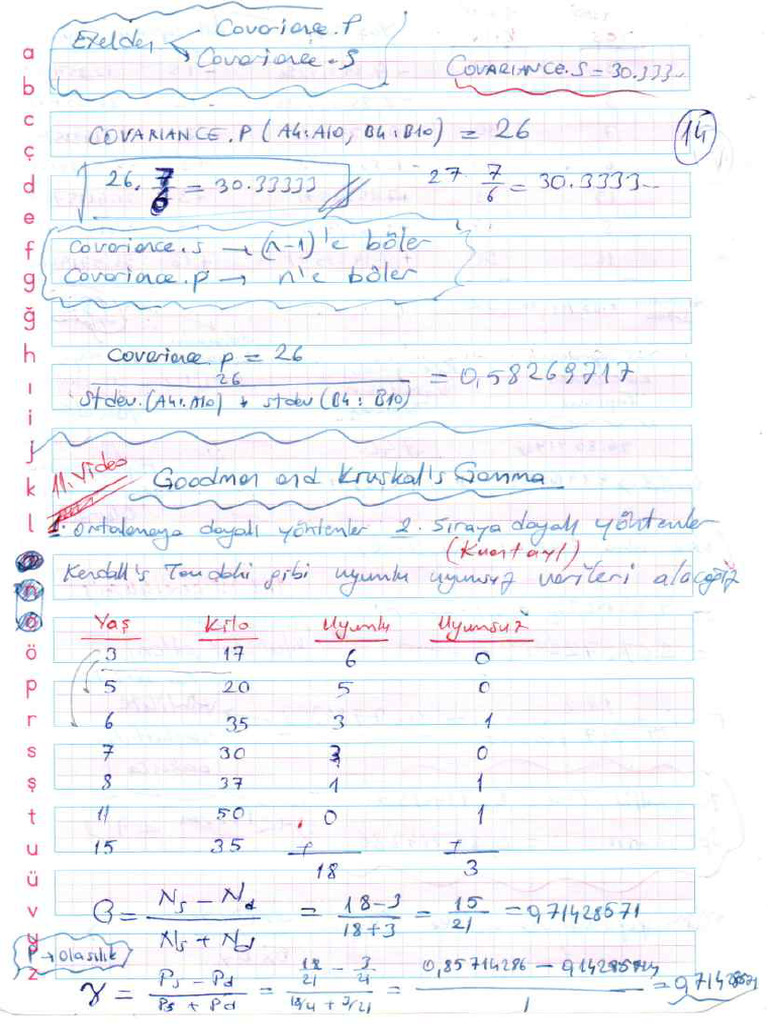 Exelden
Covariance.P
Covariance.S
COVARIANCE.S = 30.333..
COVARIANCE.P (A4:A10, B4:B10) = 26
14
26. 7/6 = 30.33333
27 7/6 = 30.3333..
Covariance.s → (n-1)'e böler
Covariance.p → n'e böler
Covariance.p = 26
26 / stdev.(A4:A10) * stdev(B4:B10) = 0,58269717
11. Video
Goodman and Kruskal's Gamma
1. Ortalamaya dayalı yöntemler 2. Sıraya dayalı yöntemler
Kendall's Tau daki gibi uyumlu uyumsuz verileri alacağız
Yaş Kilo Uyumlu Uyumsuz
3 17 6 0
5 20 5 0
6 35 3 1
7 30 3 0
8 37 1 1
11 50 0 1
15 35
+ 18 + 3
G = Ns - Nd / Ns + Nd = 18-3 / 18+3 = 15/21 = 0,71428571
P → olasılık
γ = Ps - Pd / Ps + Pd = 18/21 - 3/21 / 18/21 + 3/21 = 0,85714286 - 0,14285714 / 1 = 0,71428571
a
b
c
ç
d
e
f
g
ğ
h
ı
i
j
k
l
n
o
ö
p
r
s
ş
t
u
ü
v
z